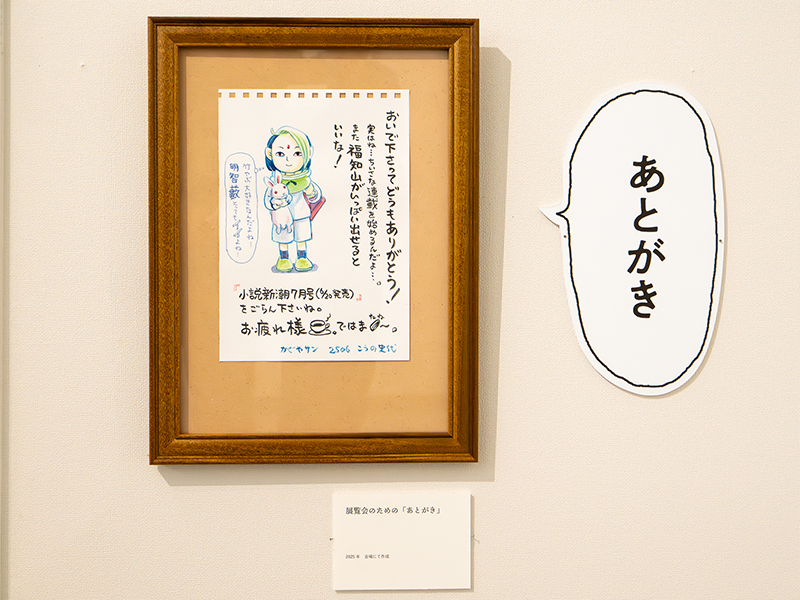 おいで下さってどうもありがとう!
実はね…ちいさな連載を始めるんだよ…。
また福知山がいっぱい出せると
いいな!
竹やぶ大好きなんだよねー
明智藪
『小説新潮7月号(6/20発売)』
をごらん下さいね。
お疲れ様。ではまた〜。
かぐやサン 2506 こうの史代
あとがき
展覧会のための「あとがき」
2025年 会場にて作成